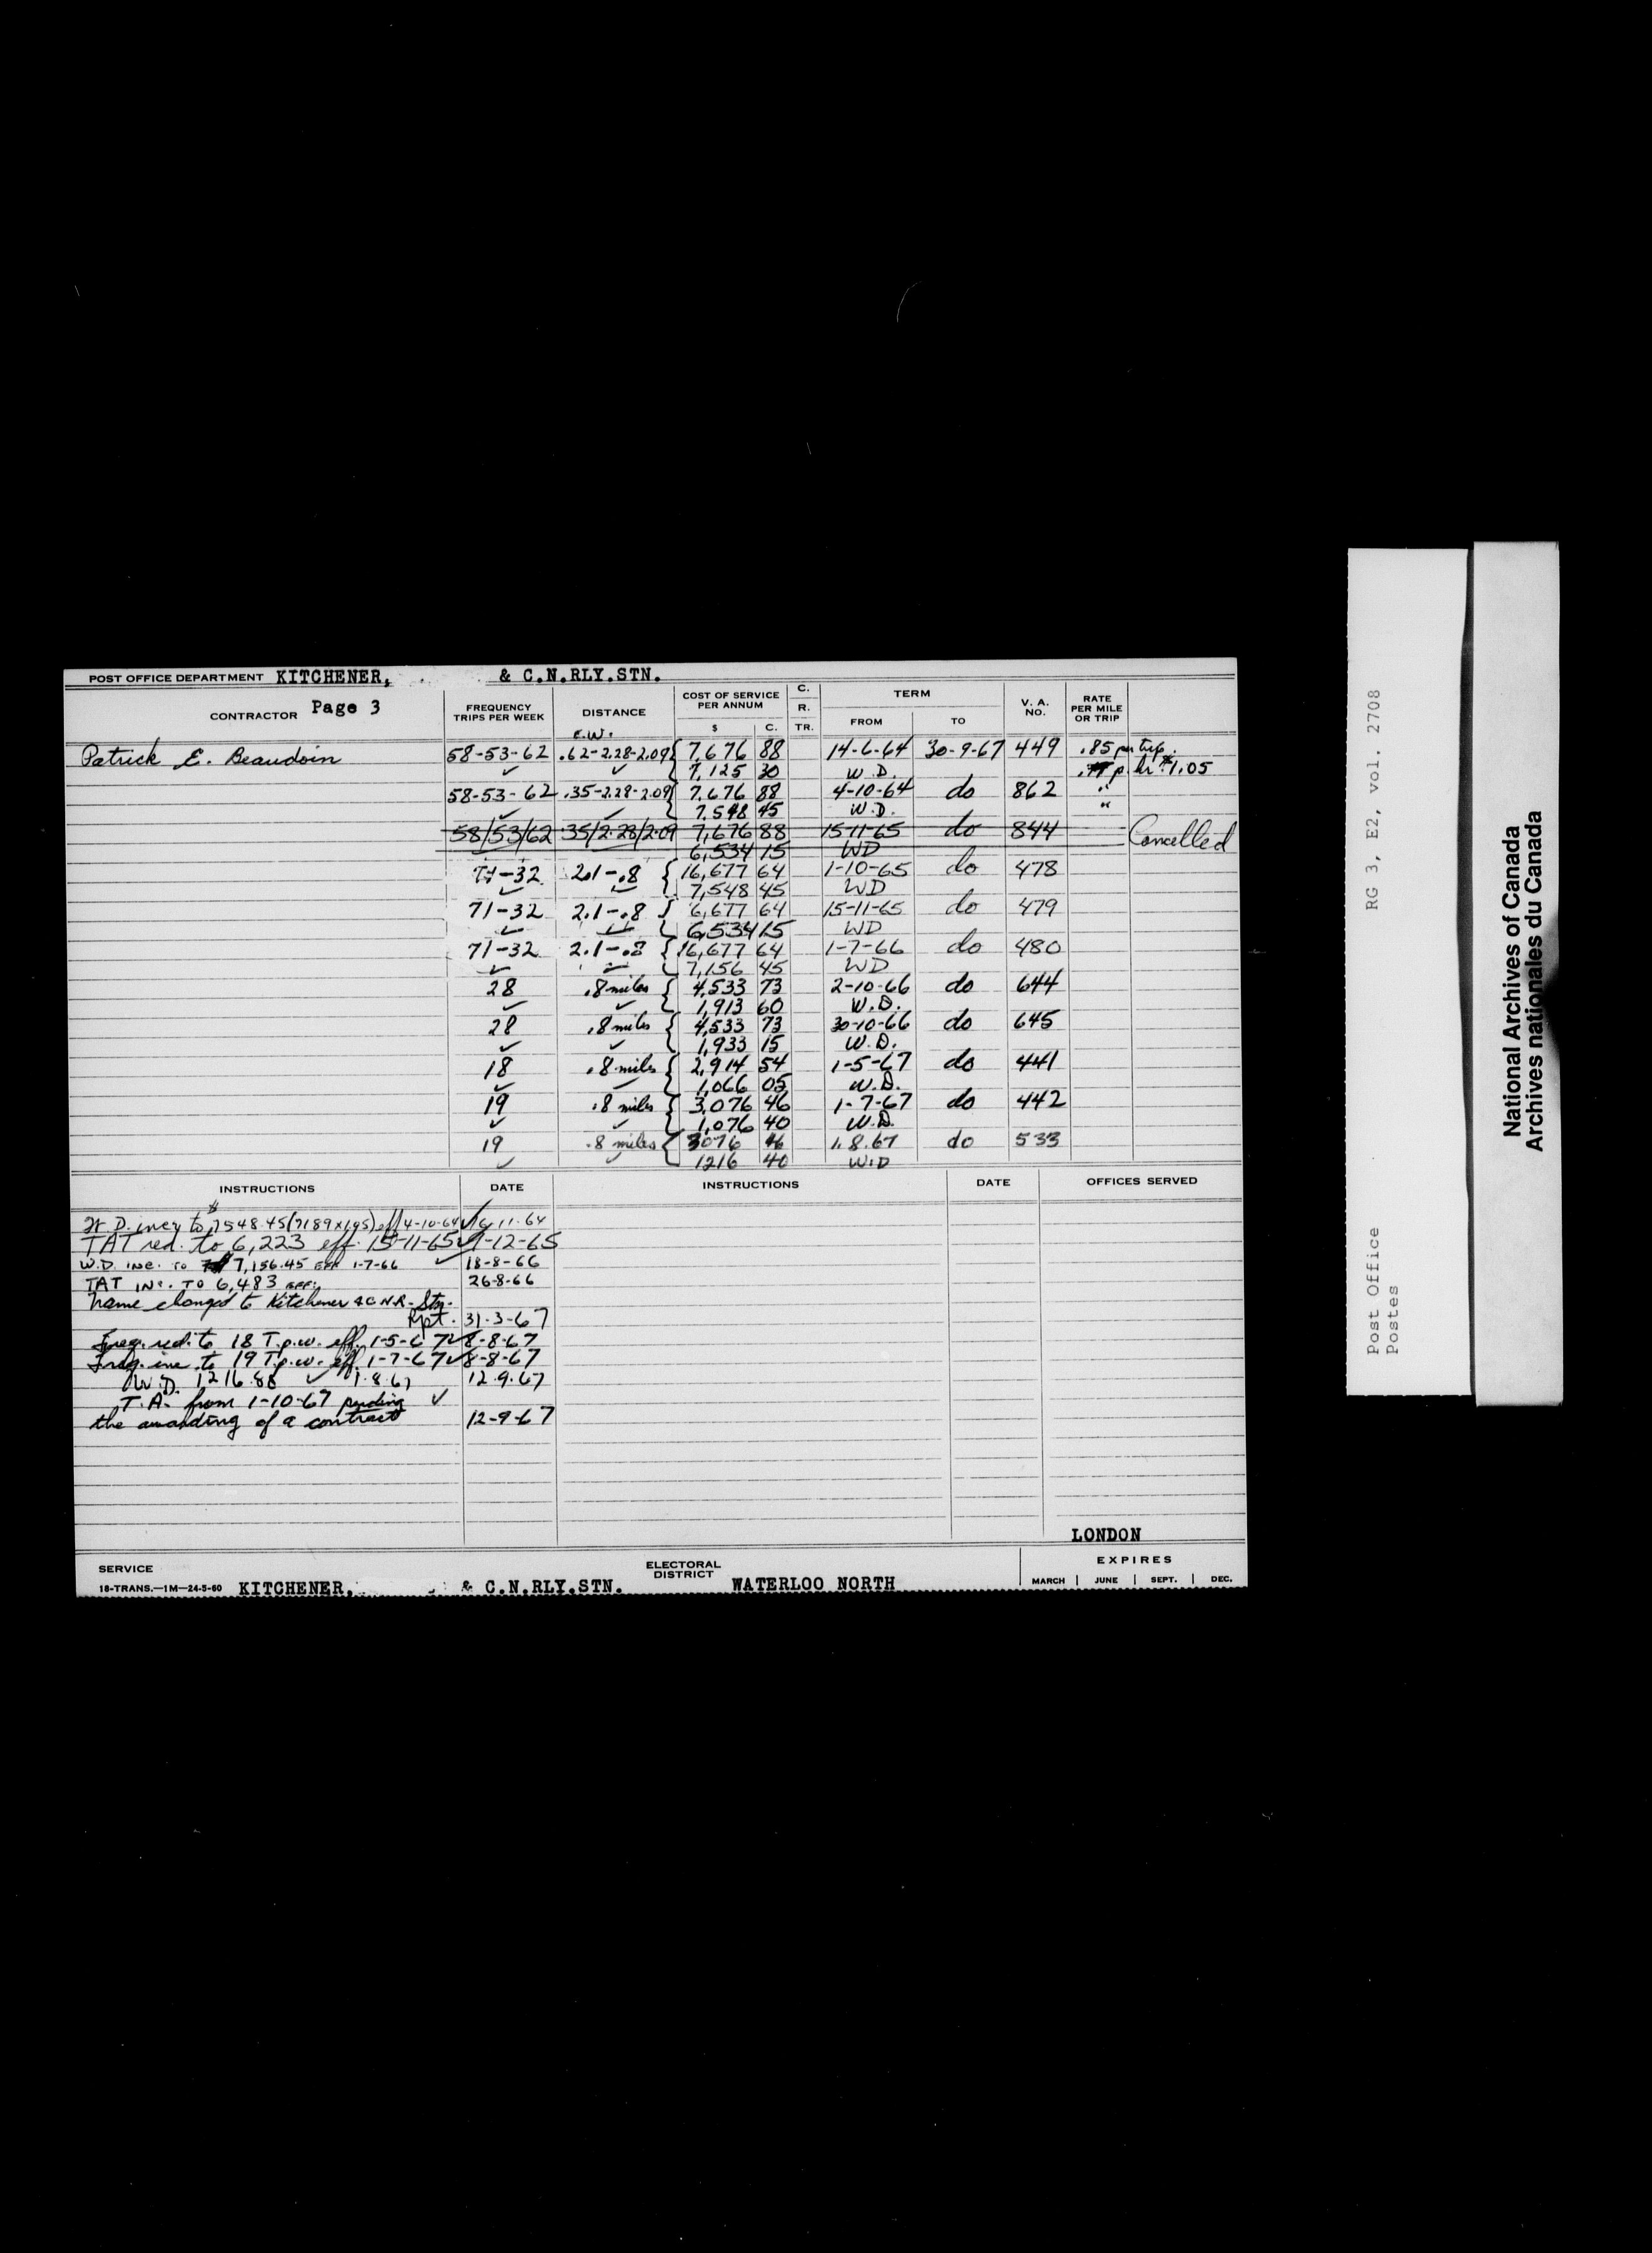 POST OFFICE DEPARTMENT KITCHENER, & C.N.RLY.STN.
CONTRACTOR Page 3 FREQUENCY TRIPS PER WEEK DISTANCE COST OF SERVICE PER ANNUM $ C. C. R. TR. TERM FROM TO V. A. NO. RATE PER MILE OR TRIP
E.W.
Patrick E. Beaudoin 58-53-62 .62-2.28-2.09 { 7,676 88 14-6-64 30-9-67 449 .85 per trip.
✓ ✓ 7,125 30 W.D. p. hr $1.05
58-53-62 .35-2.28-2.09 { 7,676 88 4-10-64 do 862 "
✓ ✓ 7,548 45 W.D. "
58/53/62 35/2.28/2.09 7,676 88 15-11-65 do 844 Cancelled
6,534 15 WD
71-32 2.1-.8 { 16,677 64 1-10-65 do 478
✓ ✓ 7,548 45 WD
71-32 2.1-.8 { 6,677 64 15-11-65 do 479
✓ ✓ 6,534 15 WD
71-32 2.1-.8 { 16,677 64 1-7-66 do 480
✓ ✓ 7,156 45 WD
28 .8 miles { 4,533 73 2-10-66 do 644
✓ ✓ 1,913 60 W.D.
28 .8 miles { 4,533 73 30-10-66 do 645
✓ ✓ 1,933 15 W.D.
18 .8 miles { 2,914 54 1-5-67 do 441
✓ ✓ 1,066 05 W.D.
19 .8 miles { 3,076 46 1-7-67 do 442
✓ ✓ 1,076 40 W.D.
19 .8 miles { 3076 46 1.8.67 do 533
✓ ✓ 1216 40 W.D
INSTRUCTIONS DATE INSTRUCTIONS DATE OFFICES SERVED
W.D. incr to $7548.45 (7189x1.05) eff 4-10-64 ✓ 16 11-64
TAT red. to 6,223 eff. 15-11-65 ✓ 1-12-65
W.D. INC. TO 7,156.45 EFF 1-7-66 ✓ 18-8-66
TAT INC. TO 6,483 EFF. 26-8-66
Name changed to Kitchener & C.N.R. Stn.
Rpt. 31-3-67
Freq. red. to 18 T.p.w. eff. 1-5-67 ✓ 8-8-67
Freq. inc. to 19 T.p.w. eff. 1-7-67 ✓ 8-8-67
W.D. 1216.88 ✓ 1.8.67 12.9.67
T.A. from 1-10-67 pending ✓
the awarding of a contract 12-9-67
LONDON
SERVICE ELECTORAL DISTRICT EXPIRES
18-TRANS.—1M—24-5-60 KITCHENER, & C.N.RLY.STN. WATERLOO NORTH MARCH | JUNE | SEPT. | DEC.
Post Office RG 3, E2, vol. 2708
Postes
National Archives of Canada
Archives nationales du Canada